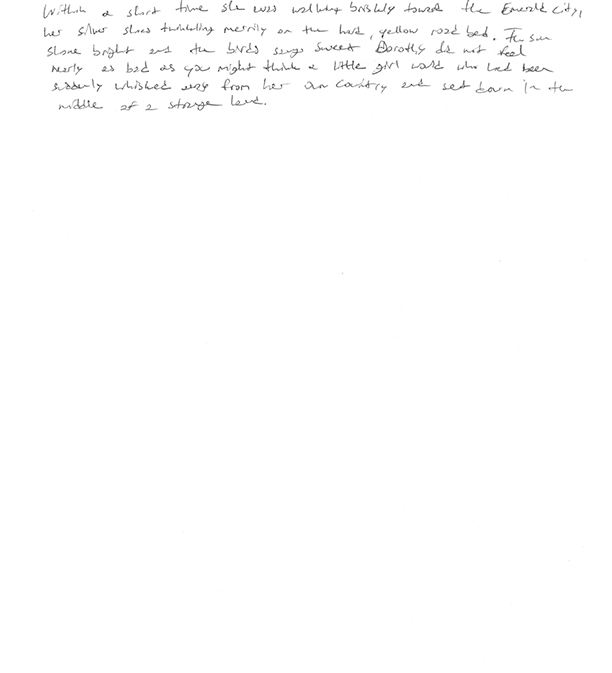 Within a short time she was walking briskly toward the Emerald City,
her silver shoes twinkling merrily on the hard, yellow road bed. The sun
shone bright and the birds sang sweet Dorothy did not feel
nearly as bad as you might think a little girl would who had been
suddenly whished away from her own country and set down in the
middle of a strange land.